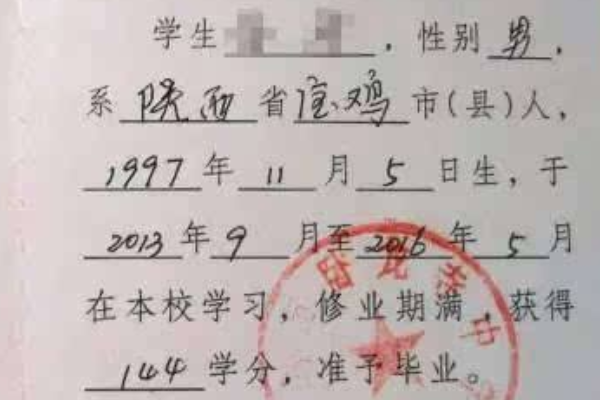 学生 ，性别男，
系陕西省宝鸡市(县)人，
1997年11月5日生，于
2013年9月至2016年5月
在本校学习，修业期满，获得
144学分，准予毕业。
中